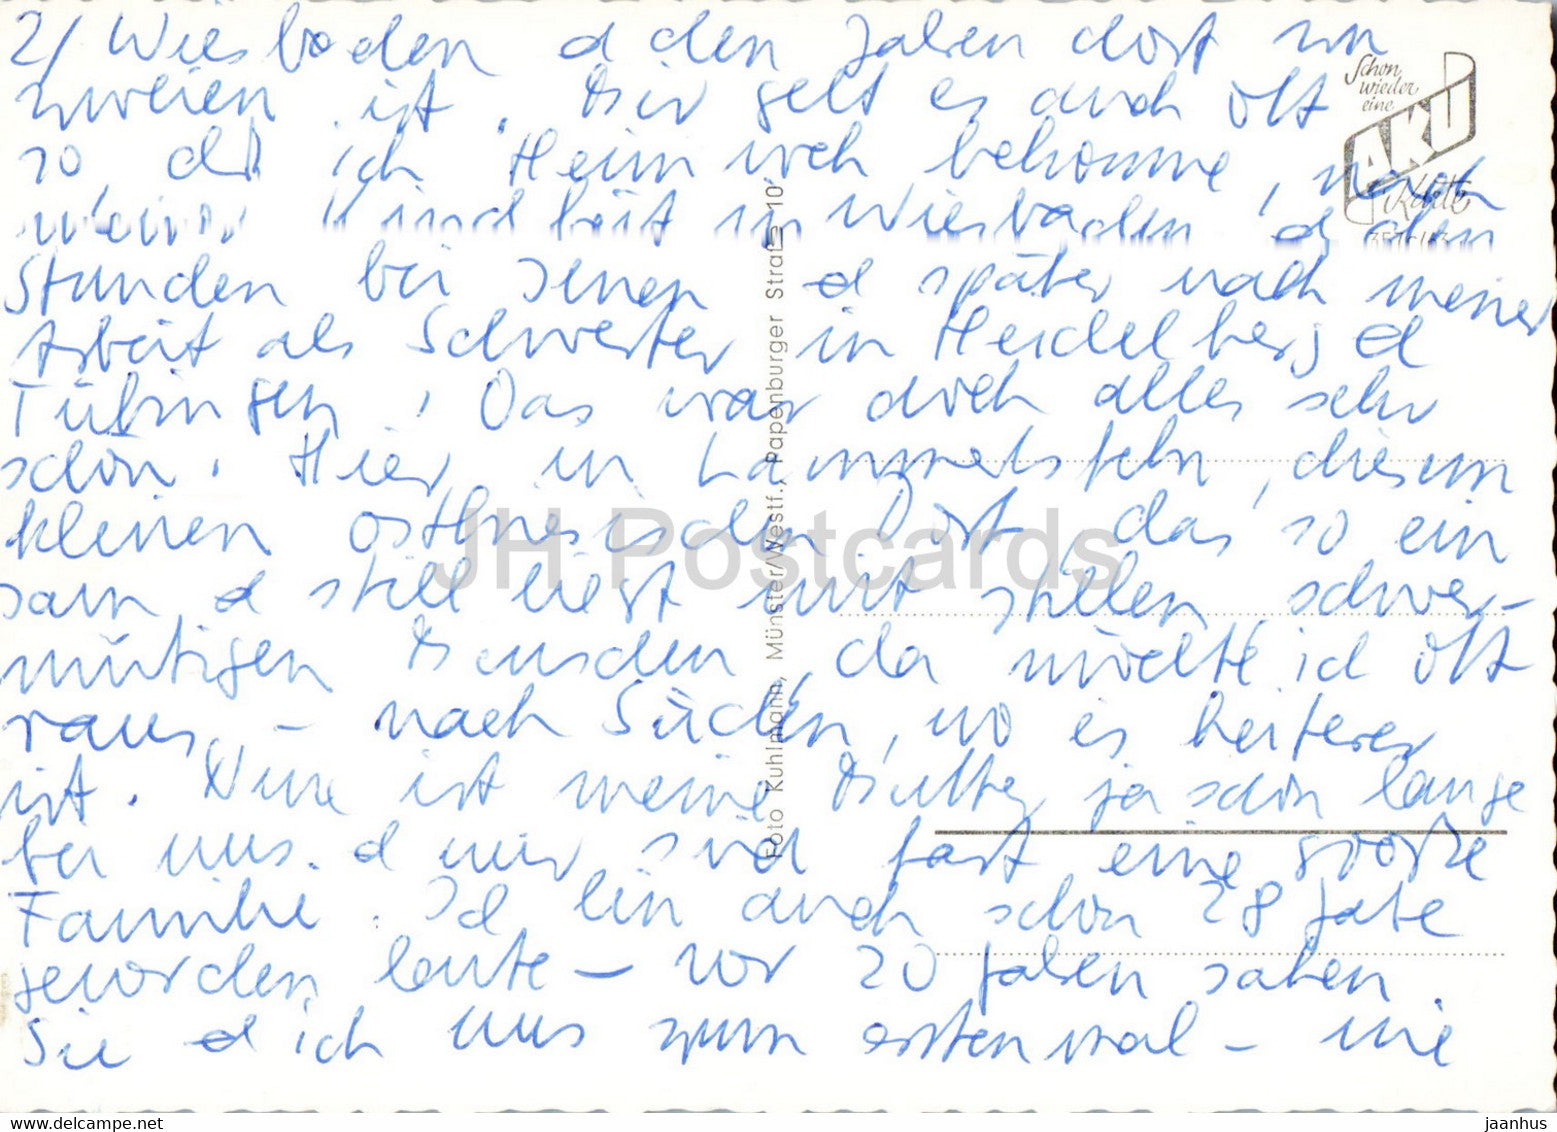 2/ Wiesbaden d den Jahren dort zu
zweien ist. Mir geht es auch oft
so, daß ich Heimweh bekomme, nach
meiner Kindheit in Wiesbaden, d den
Stunden bei Ihnen d später nach meiner
Arbeit als Schwester in Heidelberg d
Tübingen. Das war doch alles sehr
schön. Hier in diesem
kleinen ostfriesischen Dorf, das so ein
sam d still liegt mit stillen schwer-
mütigen Menschen, da möchte ich oft
raus, - nach Süden, wo es heiterer
ist. Nun ist meine Mutter ja schon lange
bei uns. d wir sind fast eine große
Familie. Ich bin auch schon 28 Jahre
geworden heute - vor 20 Jahren sahen
Sie d ich uns zum erstenmal - wie
Schon
wieder
eine
AKU
Karte
Foto Kuhlmann, Münster/Westf., Papenburger Straße 10
JH Postcards
jaanhus